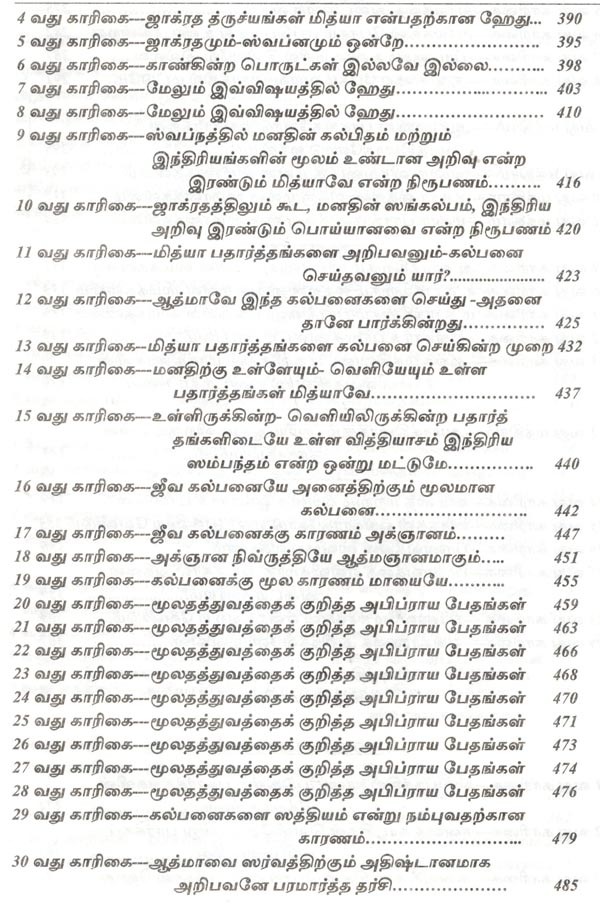 4 வது காரிகை---ஜாக்ரத த்ருச்யங்கள் மித்யா என்பதற்கான ஹேது... 390
5 வது காரிகை---ஜாக்ரதமும்-ஸ்வப்னமும் ஒன்றே........................ 395
6 வது காரிகை---காண்கின்ற பொருட்கள் இல்லவே இல்லை........... 398
7 வது காரிகை---மேலும் இவ்விஷயத்தில் ஹேது........................... 403
8 வது காரிகை---மேலும் இவ்விஷயத்தில் ஹேது........................... 410
9 வது காரிகை---ஸ்வப்நத்தில் மனதின் கல்பிதம் மற்றும்
இந்திரியங்களின் மூலம் உண்டான அறிவு என்ற
இரண்டும் மித்யாவே என்ற நிரூபணம்.......... 416
10 வது காரிகை---ஜாக்ரதத்திலும் கூட, மனதின் ஸங்கல்பம், இந்திரிய
அறிவு இரண்டும் பொய்யானவை என்ற நிரூபணம் 420
11 வது காரிகை---மித்யா பதார்த்தங்களை அறிபவனும்-கல்பனை
செய்தவனும் யார்?........................ 423
12 வது காரிகை---ஆத்மாவே இந்த கல்பனைகளை செய்து -அதனை
தானே பார்க்கின்றது.............. 425
13 வது காரிகை--மித்யா பதார்த்தங்களை கல்பனை செய்கின்ற முறை 432
14 வது காரிகை---மனதிற்கு உள்ளேயும்- வெளியேயும் உள்ள
பதார்த்தங்கள் மித்யாவே............... 437
15 வது காரிகை---உள்ளிருக்கின்ற- வெளியிலிருக்கின்ற பதார்த்
தங்களிடையே உள்ள வித்தியாசம் இந்திரிய
ஸம்பந்தம் என்ற ஒன்று மட்டுமே............... 440
16 வது காரிகை---ஜீவ கல்பனையே அனைத்திற்கும் மூலமான
கல்பனை........................... 442
17 வது காரிகை---ஜீவ கல்பனைக்கு காரணம் அக்ஞானம்......... 447
18 வது காரிகை---அக்ஞான நிவ்ருத்தியே ஆத்மஞானமாகும்..... 451
19 வது காரிகை---கல்பனைக்கு மூல காரணம் மாயையே.......... 455
20 வது காரிகை---மூலதத்துவத்தைக் குறித்த அபிப்ராய பேதங்கள் 459
21 வது காரிகை---மூலதத்துவத்தைக் குறித்த அபிப்ராய பேதங்கள் 463
22 வது காரிகை---மூலதத்துவத்தைக் குறித்த அபிப்ராய பேதங்கள் 466
23 வது காரிகை---மூலதத்துவத்தைக் குறித்த அபிப்ராய பேதங்கள் 468
24 வது காரிகை---மூலதத்துவத்தைக் குறித்த அபிப்ராய பேதங்கள் 470
25 வது காரிகை---மூலதத்துவத்தைக் குறித்த அபிப்ராய பேதங்கள் 471
26 வது காரிகை---மூலதத்துவத்தைக் குறித்த அபிப்ராய பேதங்கள் 473
27 வது காரிகை---மூலதத்துவத்தைக் குறித்த அபிப்ராய பேதங்கள் 474
28 வது காரிகை---மூலதத்துவத்தைக் குறித்த அபிப்ராய பேதங்கள் 476
29 வது காரிகை---கல்பனைகளை ஸத்தியம் என்று நம்புவதற்கான
காரணம்........................... 479
30 வது காரிகை---ஆத்மாவை ஸர்வத்திற்கும் அதிஷ்டானமாக
அறிபவனே பரமார்த்த தர்சி.................... 485